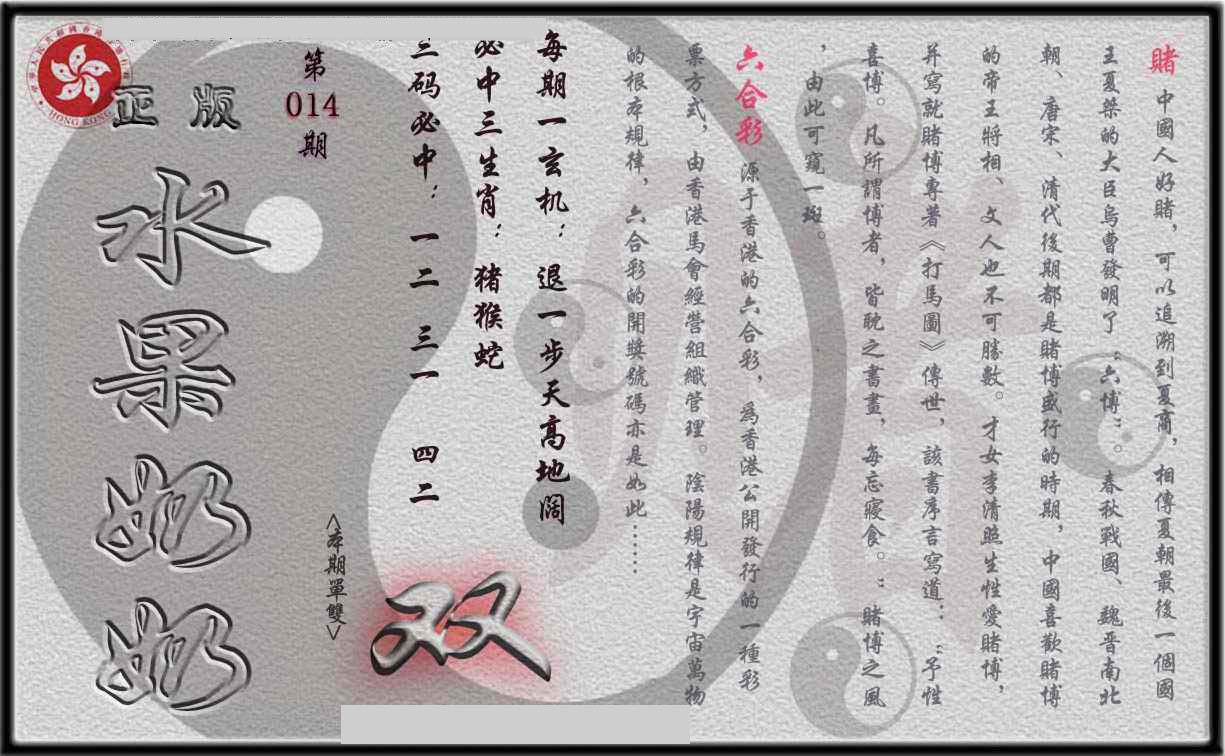 賭 中國人好賭，可以追溯到夏商，相傳夏朝最後一個國
王夏桀的大臣烏曹發明了“六博”。春秋戰國、魏晉南北
朝、唐宋、清代後期都是賭博盛行的時期，中國喜歡賭博
的帝王將相、文人也不可勝數。才女李清照生性愛賭博，
并寫就賭博專著《打馬圖》傳世，該書序言寫道：“予性
喜博。凡所謂博者，皆耽之書晝，每忘寢食。”賭博之風
，由此可窺一斑。
六合彩 源于香港的六合彩，爲香港公開發行的一種彩
票方式，由香港馬會經營組織管理。陰陽規律是宇宙萬物
的根本規律，六合彩的開獎號碼亦是如此……
每期一玄机：退一步天高地阔
必中三生肖：猪猴蛇
三码必中：一二 三一 四二
双
<本期單雙>
第
014
期
正版
水果奶奶
HONG KONG